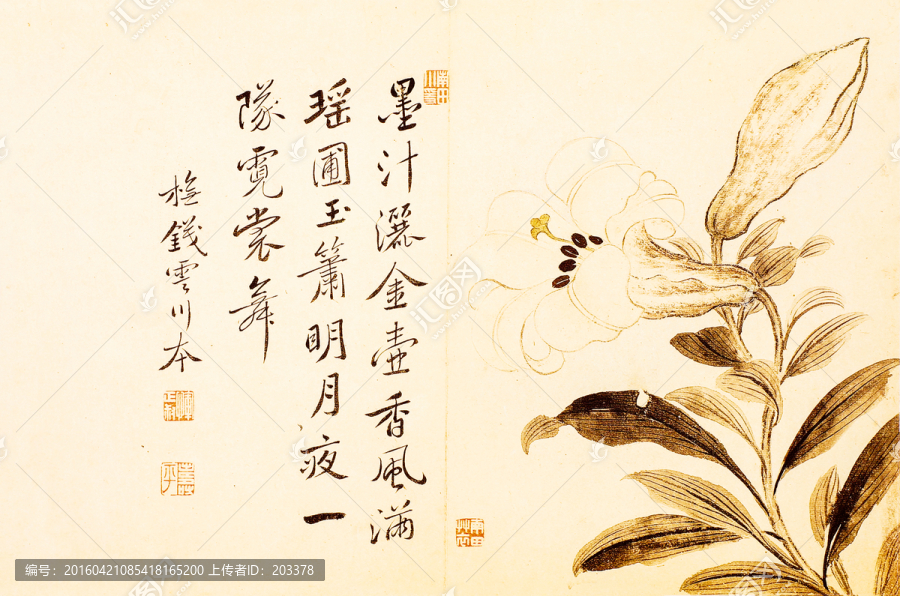 墨汁灑金壺香風滿
瑤圃玉簫明月夜一
隊霓裳舞
橅錢雲川本
编号：20160421085418165200 上传者ID：203378